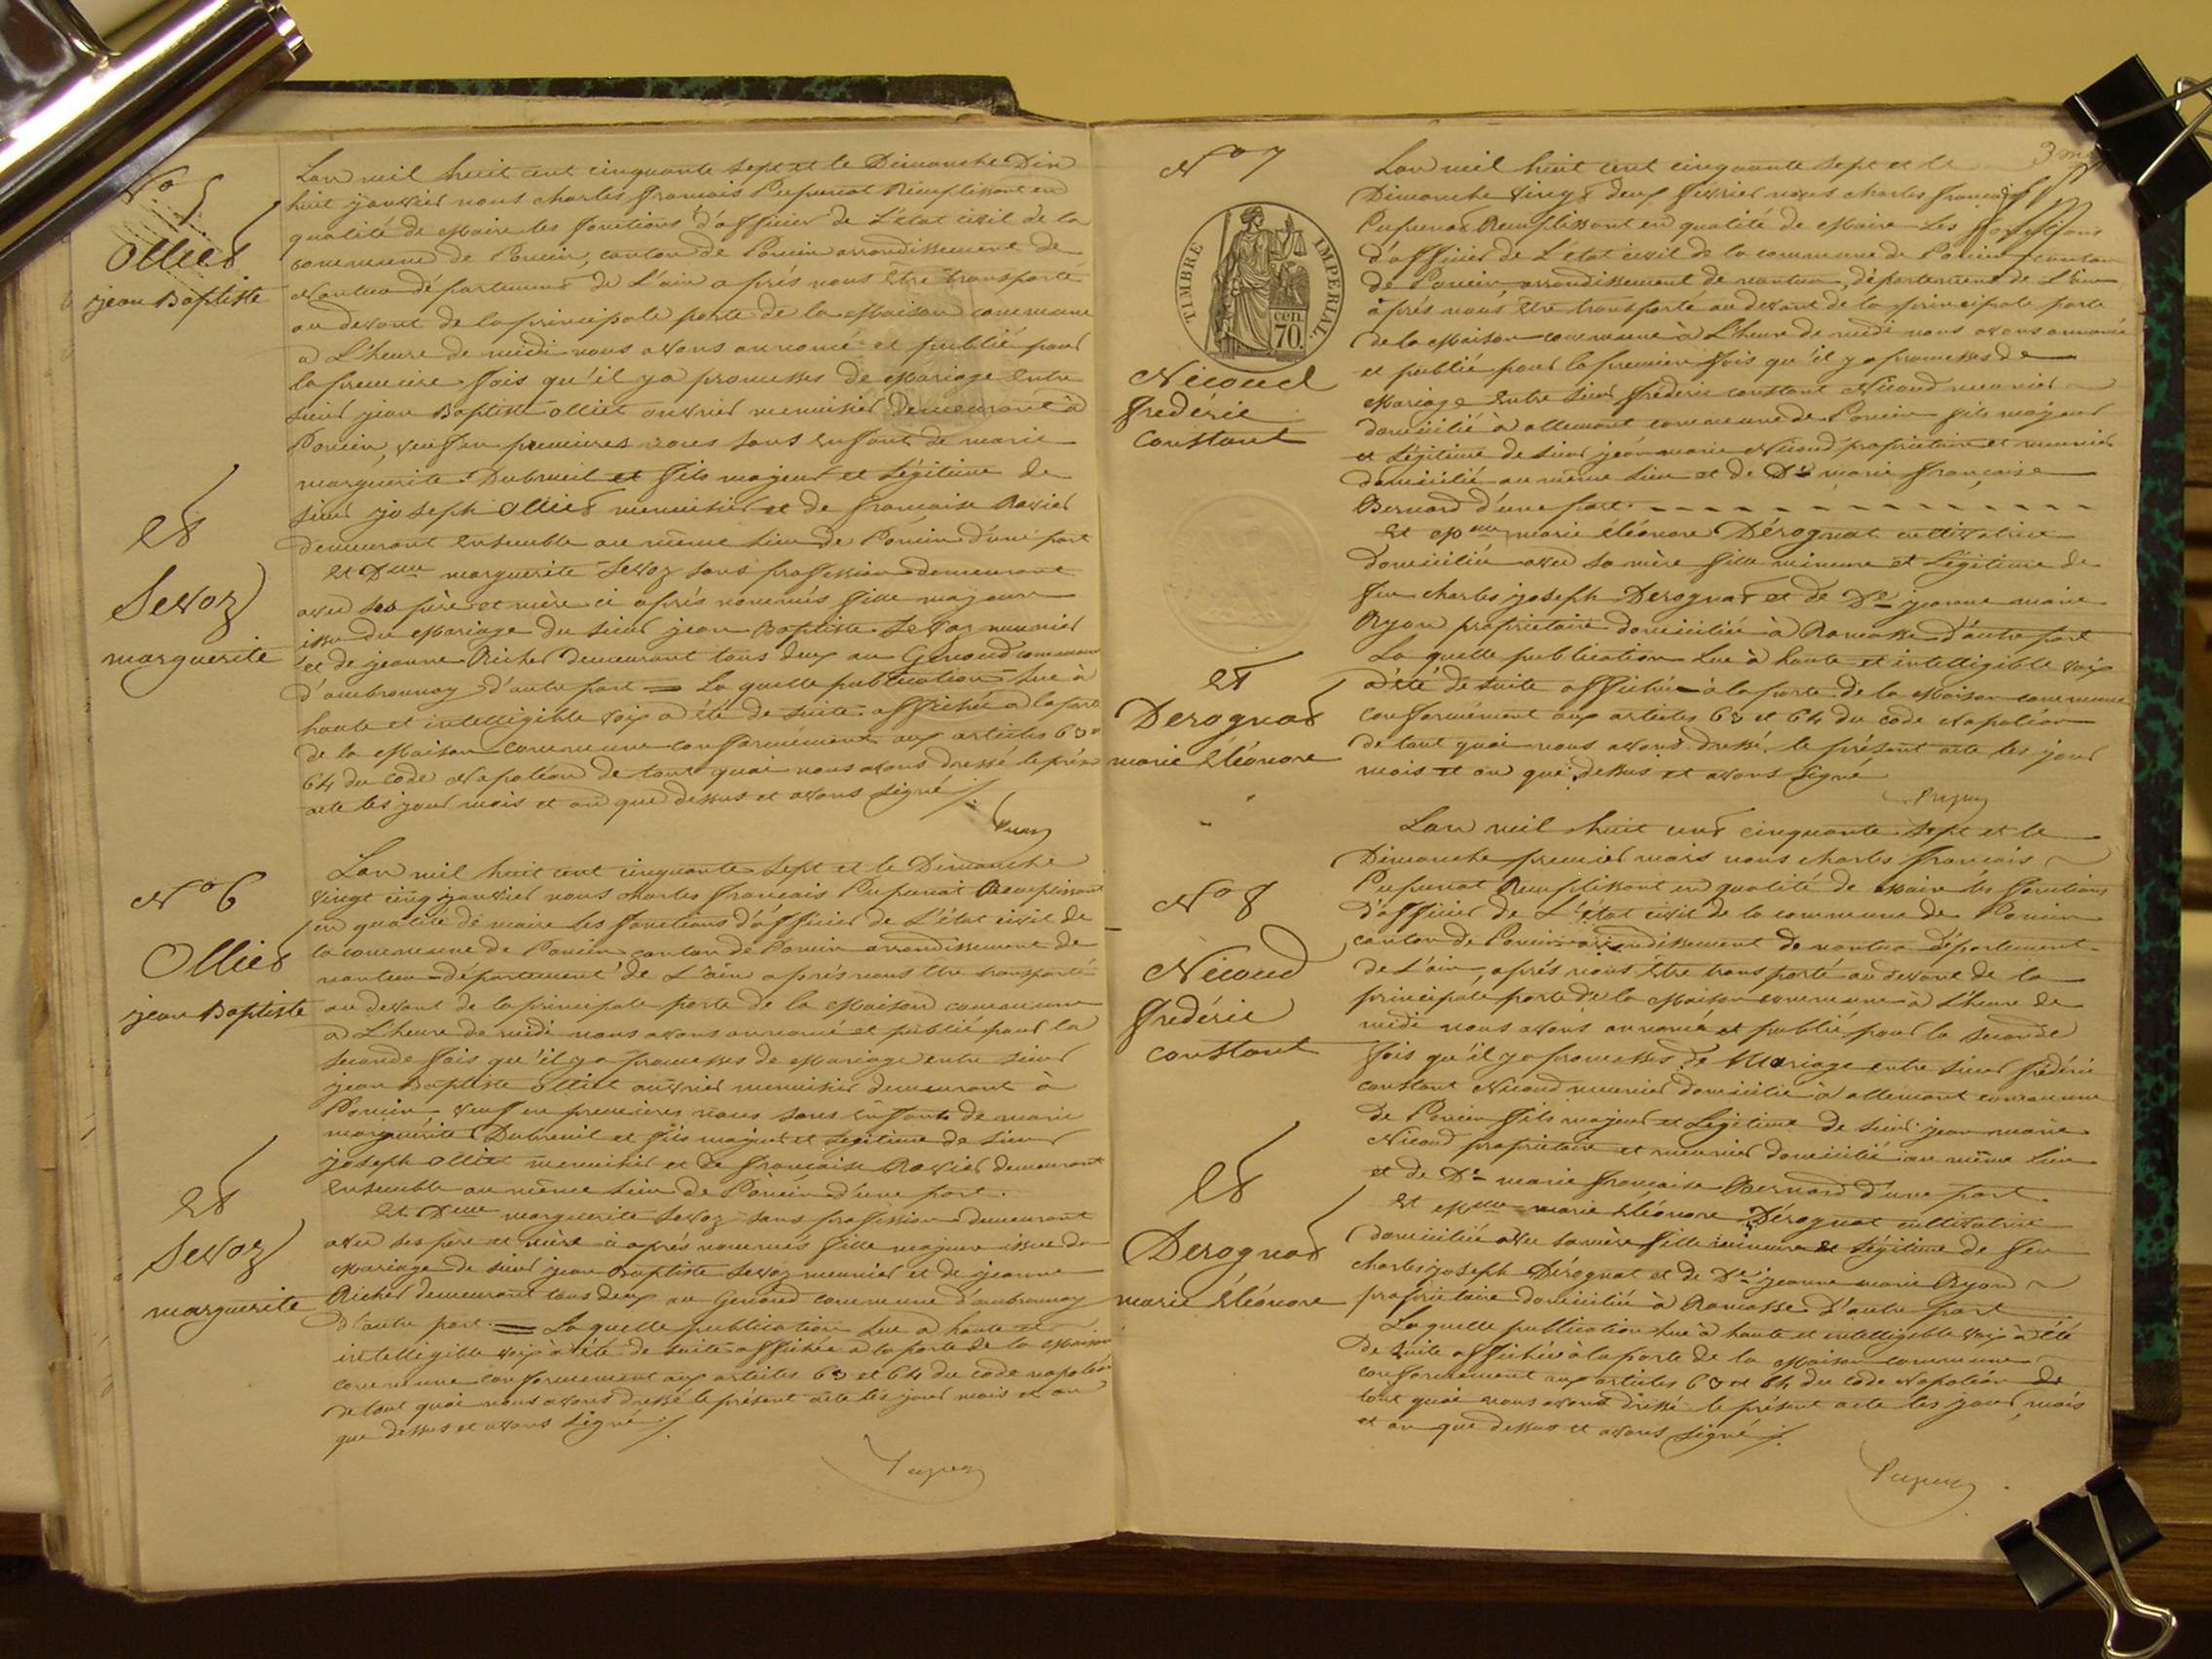 N° 5
Olliet
jean Baptiste
et
Sevoz
marguerite
L'an mil huit cent cinquante sept et le Dimanche Dix
huit janvier nous charles francois Pupunat Remplissant en
qualité de Maire les fonctions d'officier de L'état civil de la
commune de Poncin, canton de Poncin arrondissement de
Nantua département de L'ain après nous être transporté
au devant de la principale porte de la Maison commune
a L'heure de midi nous avons annoncé et publié pour
la premiere fois qu'il y a promesses de Mariage entre
sieur jean Baptiste olliet ouvrier menuisier demeurant à
Poncin, veuf en premieres noces sans enfant de marie
marguerite Dubreuil et fils majeur et Légitime de
sieur joseph Olliet menuisier et de francoise Ravier
demeurant ensemble au même lieu de Poncin d'une part
et Dlle marguerite Sevoz sans profession demeurant
avec ses père et mère ci après nommés fille majeure
issu du Mariage du sieur jean Baptiste Sevoz meunier
et de jeanne Richer demeurant tous deux au Genoud commune
d'ambronnay d'autre part = La quelle publication Lue à
haute et intelligible voix a été de suite affichée a la porte
de la Maison commune conformément aux articles 63 et
64 du code Napoléon de tout quoi nous avons dressé le présent
acte les jour mois et an que dessus et avons signé
N° 6
Olliet
jean Baptiste
et
Sevoz
marguerite
L'an mil huit cent cinquante sept et le Dimanche
vingt cinq janvier nous charles francais Pupunat Remplissant
en qualité de maire les fonctions d'officier de L'état civil de
la commune de Poncin canton de Poncin arrondissement de
nantua département de L'ain après nous être transporté
au devant de la principale porte de la Maison commune
a L'heure de midi nous avons annoncé et publié pour la
seconde fois qu'il y a promesses de Mariage entre sieur
jean Baptiste olliet ouvrier menuisier demeurant à
Poncin, veuf en premieres noces sans enfants de marie
marguérite Dubreuil et fils majeur et Légitime de sieur
joseph olliet menuisier et de francoise Ravier demeurant
ensemble au même lieu de Poncin d'une part.
et Dlle marguerite Sevoz sans profession demeurant
avec ses père et mère ci après nommés fille majeure issue du
Mariage de sieur jean Baptiste Sevoz meunier et de jeanne
Richer demeurant tous deux au Genoud commune d'ambronnay
d'autre part. = La quelle publication Lue a haute et
intelligible voix a été de suite affichée a la porte de la Maison
commune conformement aux articles 63 et 64 du code napoléon
de tout quoi nous avons dressé le présent acte les jour mois et an
que dessus et avons signé
N° 7
TIMBRE IMPERIAL.
cen. 70.
Nicoud
frédéric
constant
et
Derognat
marie Eléonore
L'an mil huit cent cinquante sept et le
Dimanche vingt deux fevrier nous charles francois
Pupunat Remplissant en qualité de Maire Les fonctions
d'officier de L'état civil de la commune de Poncin canton
de Poncin arrondissement de nantua, département de L'ain
après nous être transporté au devant de la principale porte
de la Maison commune à L'heure de midi nous avons annoncé
et publié pour la premiere fois qu'il y a promesses de
Mariage entre sieur frédéric constant Nicoud meunier
domicilié à allement commune de Poncin fils majeur
et Légitime de sieur jean marie Nicoud propriétaire et meunier
domicilié au même lieu et de De marie francoise
Bernard d'une part.
et Mlle marie éléonore Dérognat cultivatrice
domiciliée avec sa mère fille mineure et Légitime de
feu charles joseph Derognat et de De jeanne marie
Ryon propriétaire domiciliée à Ramasse d'autre part
La quelle publication Lue à haute et intelligible voix
a été de suite affichée à la porte de la Maison commune
conformément aux articles 63 et 64 du code Napoléon
de tout quoi nous avons dressé le présent acte les jour
mois et an que dessus et avons signé
N° 8
Nicoud
frédéric
constant
et
Derognat
marie Eléonore
L'an mil huit cent cinquante sept et le
Dimanche premier mars nous charles francois
Pupunat Remplissant en qualité de Maire les fonctions
d'officier de L'état civil de la commune de Poncin
canton de Poncin arrondissement de nantua département
de L'ain, après nous être transporté au devant de la
principale porte de la Maison commune à L'heure de
midi nous avons annoncé et publié pour la seconde
fois qu'il y a promesses de Mariage entre sieur frédéric
constant Nicoud meunier domicilié à allement commune
de Poncin fils majeur et Légitime de sieur jean marie
Nicoud propriétaire et meunier domicilié au même lieu
et de De marie francoise Bernard d'une part.
et Mlle marie Eléonore Dérognat cultivatrice
domiciliée avec sa mère fille mineure et Légitime de feu
charles joseph Dérognat et de De jeanne marie Ryon
propriétaire domiciliée à Ramasse d'autre part
La quelle publication Lue à haute et intelligible voix a été
de suite affichée à la porte de la Maison commune
conformément aux articles 63 et 64 du code Napoléon de
tout quoi nous avons dressé le présent acte les jour, mois
et an que dessus et avons signé